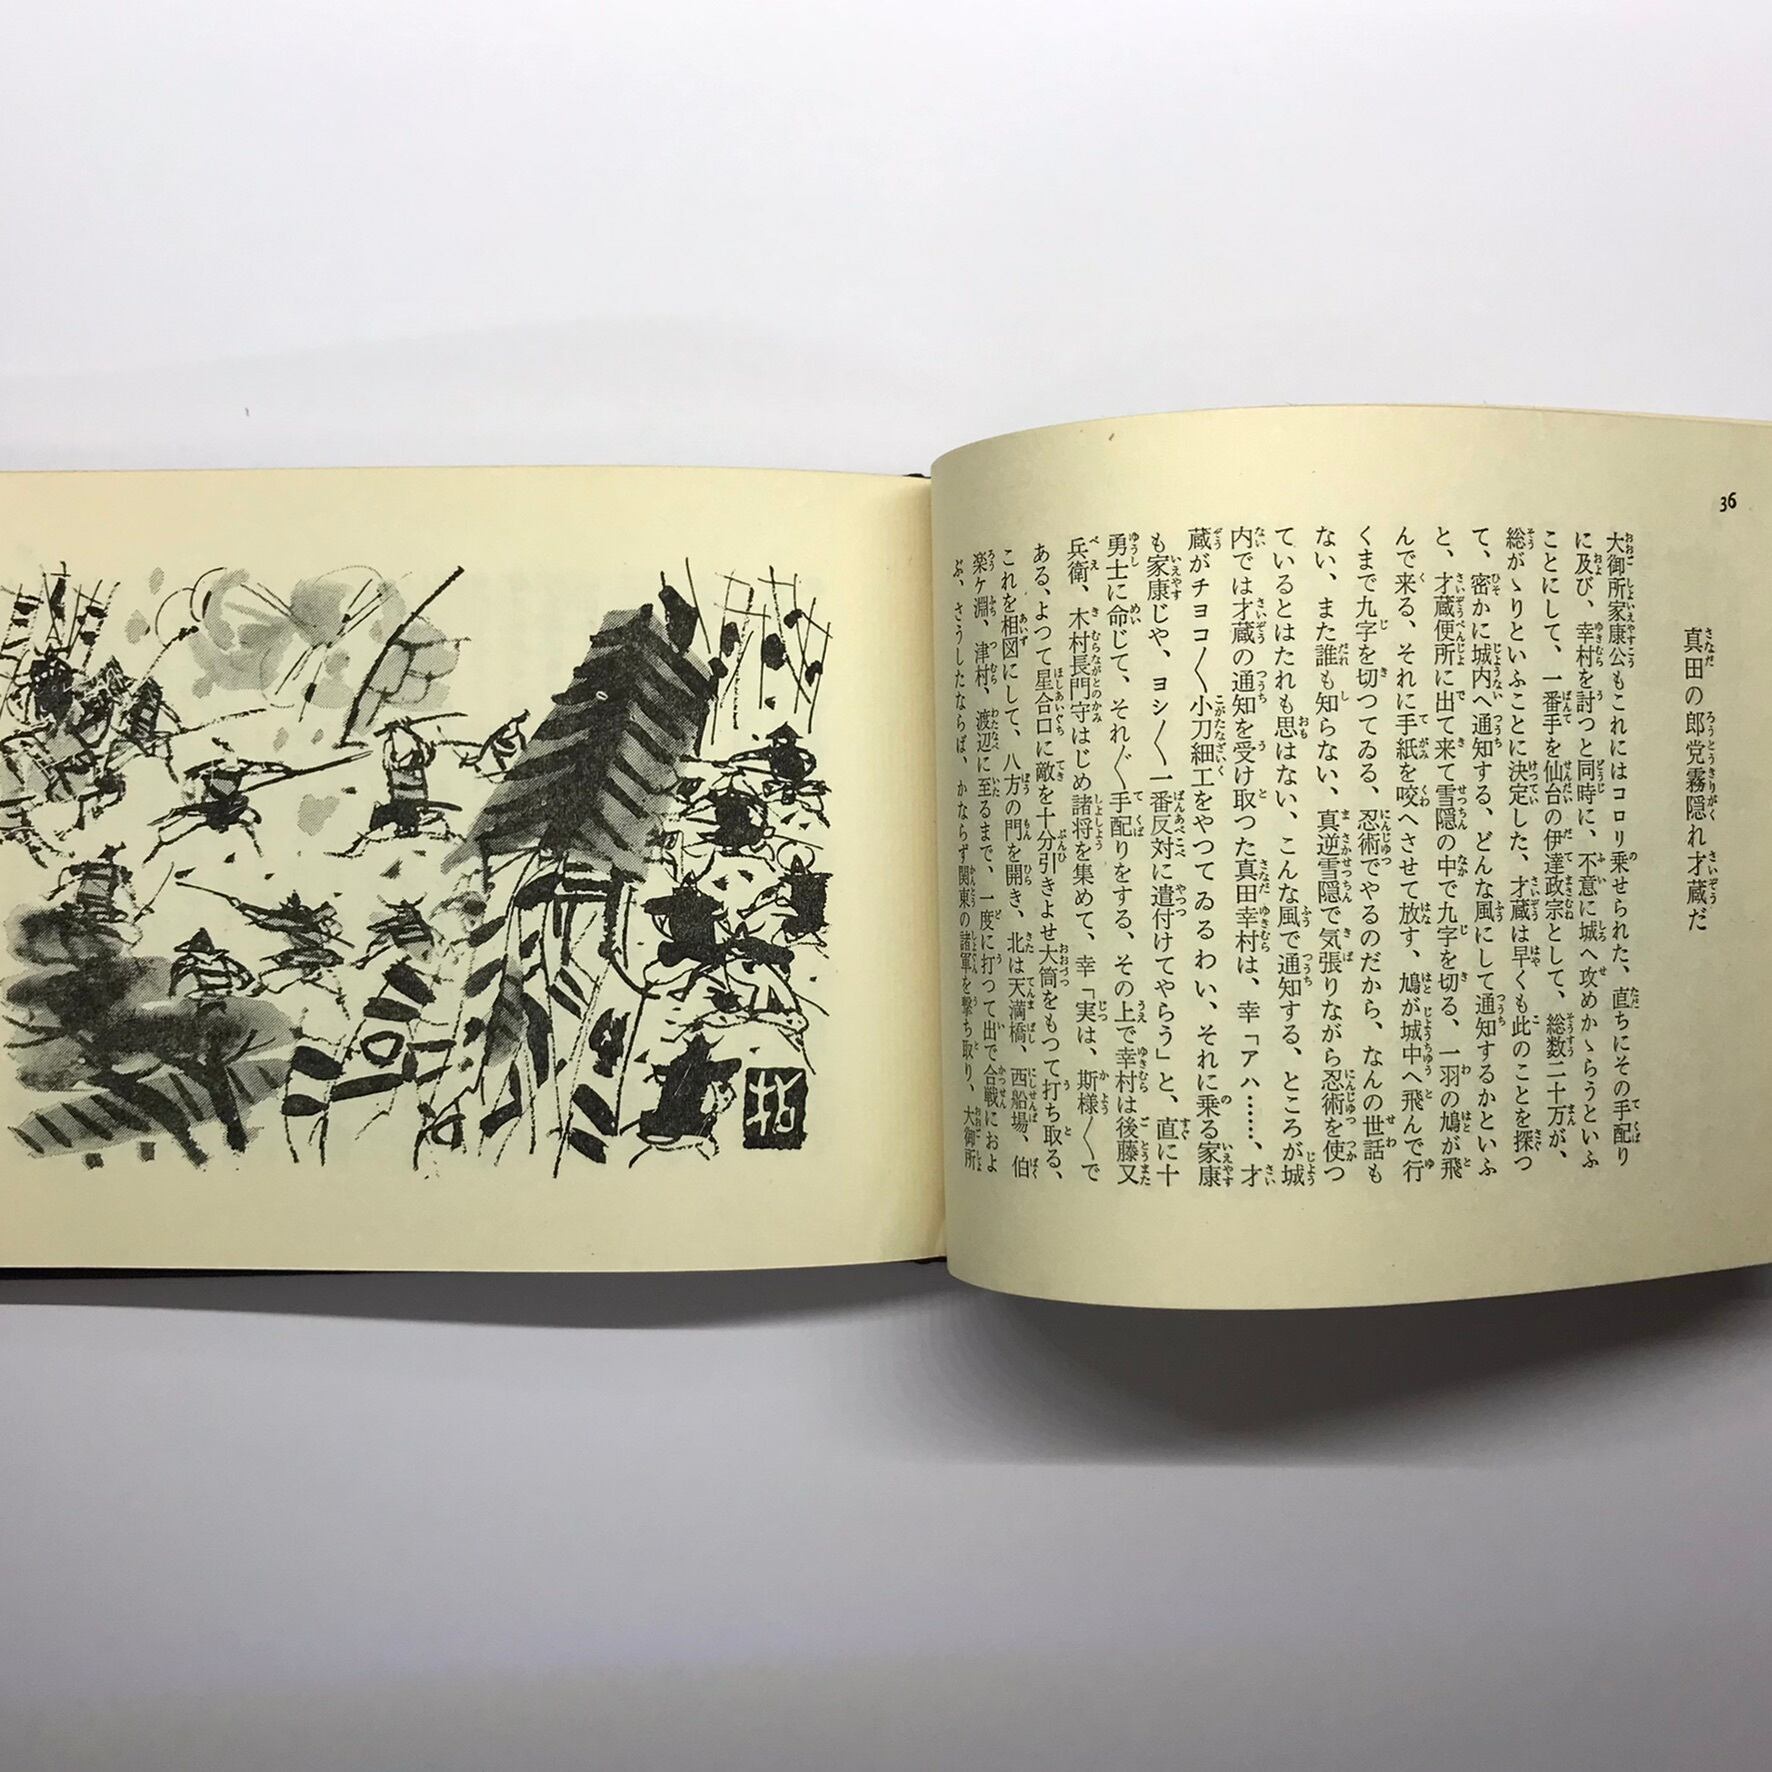 36
真田の郎党霧隠れ才蔵だ
大御所家康公もこれにはコロリ乗せられた、直ちにその手配り
に及び、幸村を討つと同時に、不意に城へ攻めかゝらうといふ
ことにして、一番手を仙台の伊達政宗として、総数二十万が、
総がゝりといふことに決定した、才蔵は早くも此のことを探つ
て、密かに城内へ通知する、どんな風にして通知するかといふ
と、才蔵便所に出て来て雪隠の中で九字を切る、一羽の鳩が飛
んで来る、それに手紙を咬へさせて放す、鳩が城中へ飛んで行
くまで九字を切つてゐる、忍術でやるのだから、なんの世話も
ない、また誰も知らない、真逆雪隠で気張りながら忍術を使つ
ているとはたれも思はない、こんな風で通知する、ところが城
内では才蔵の通知を受け取つた真田幸村は、幸「アハ……、才
蔵がチヨコ〱小刀細工をやつてゐるわい、それに乗る家康
も家康じや、ヨシ〱一番反対に遣付けてやらう」と、直に十
勇士に命じて、それ〲手配りをする、その上で幸村は後藤又
兵衛、木村長門守はじめ諸将を集めて、幸「実は、斯様〱で
ある、よつて星合口に敵を十分引きよせ大筒をもつて打ち取る、
これを相図にして、八方の門を開き、北は天満橋、西船場、伯
楽ケ淵、津村、渡辺に至るまで、一度に打つて出で合戦におよ
ぶ、さうしたならば、かならず関東の諸軍を撃ち取り、大御所
拓